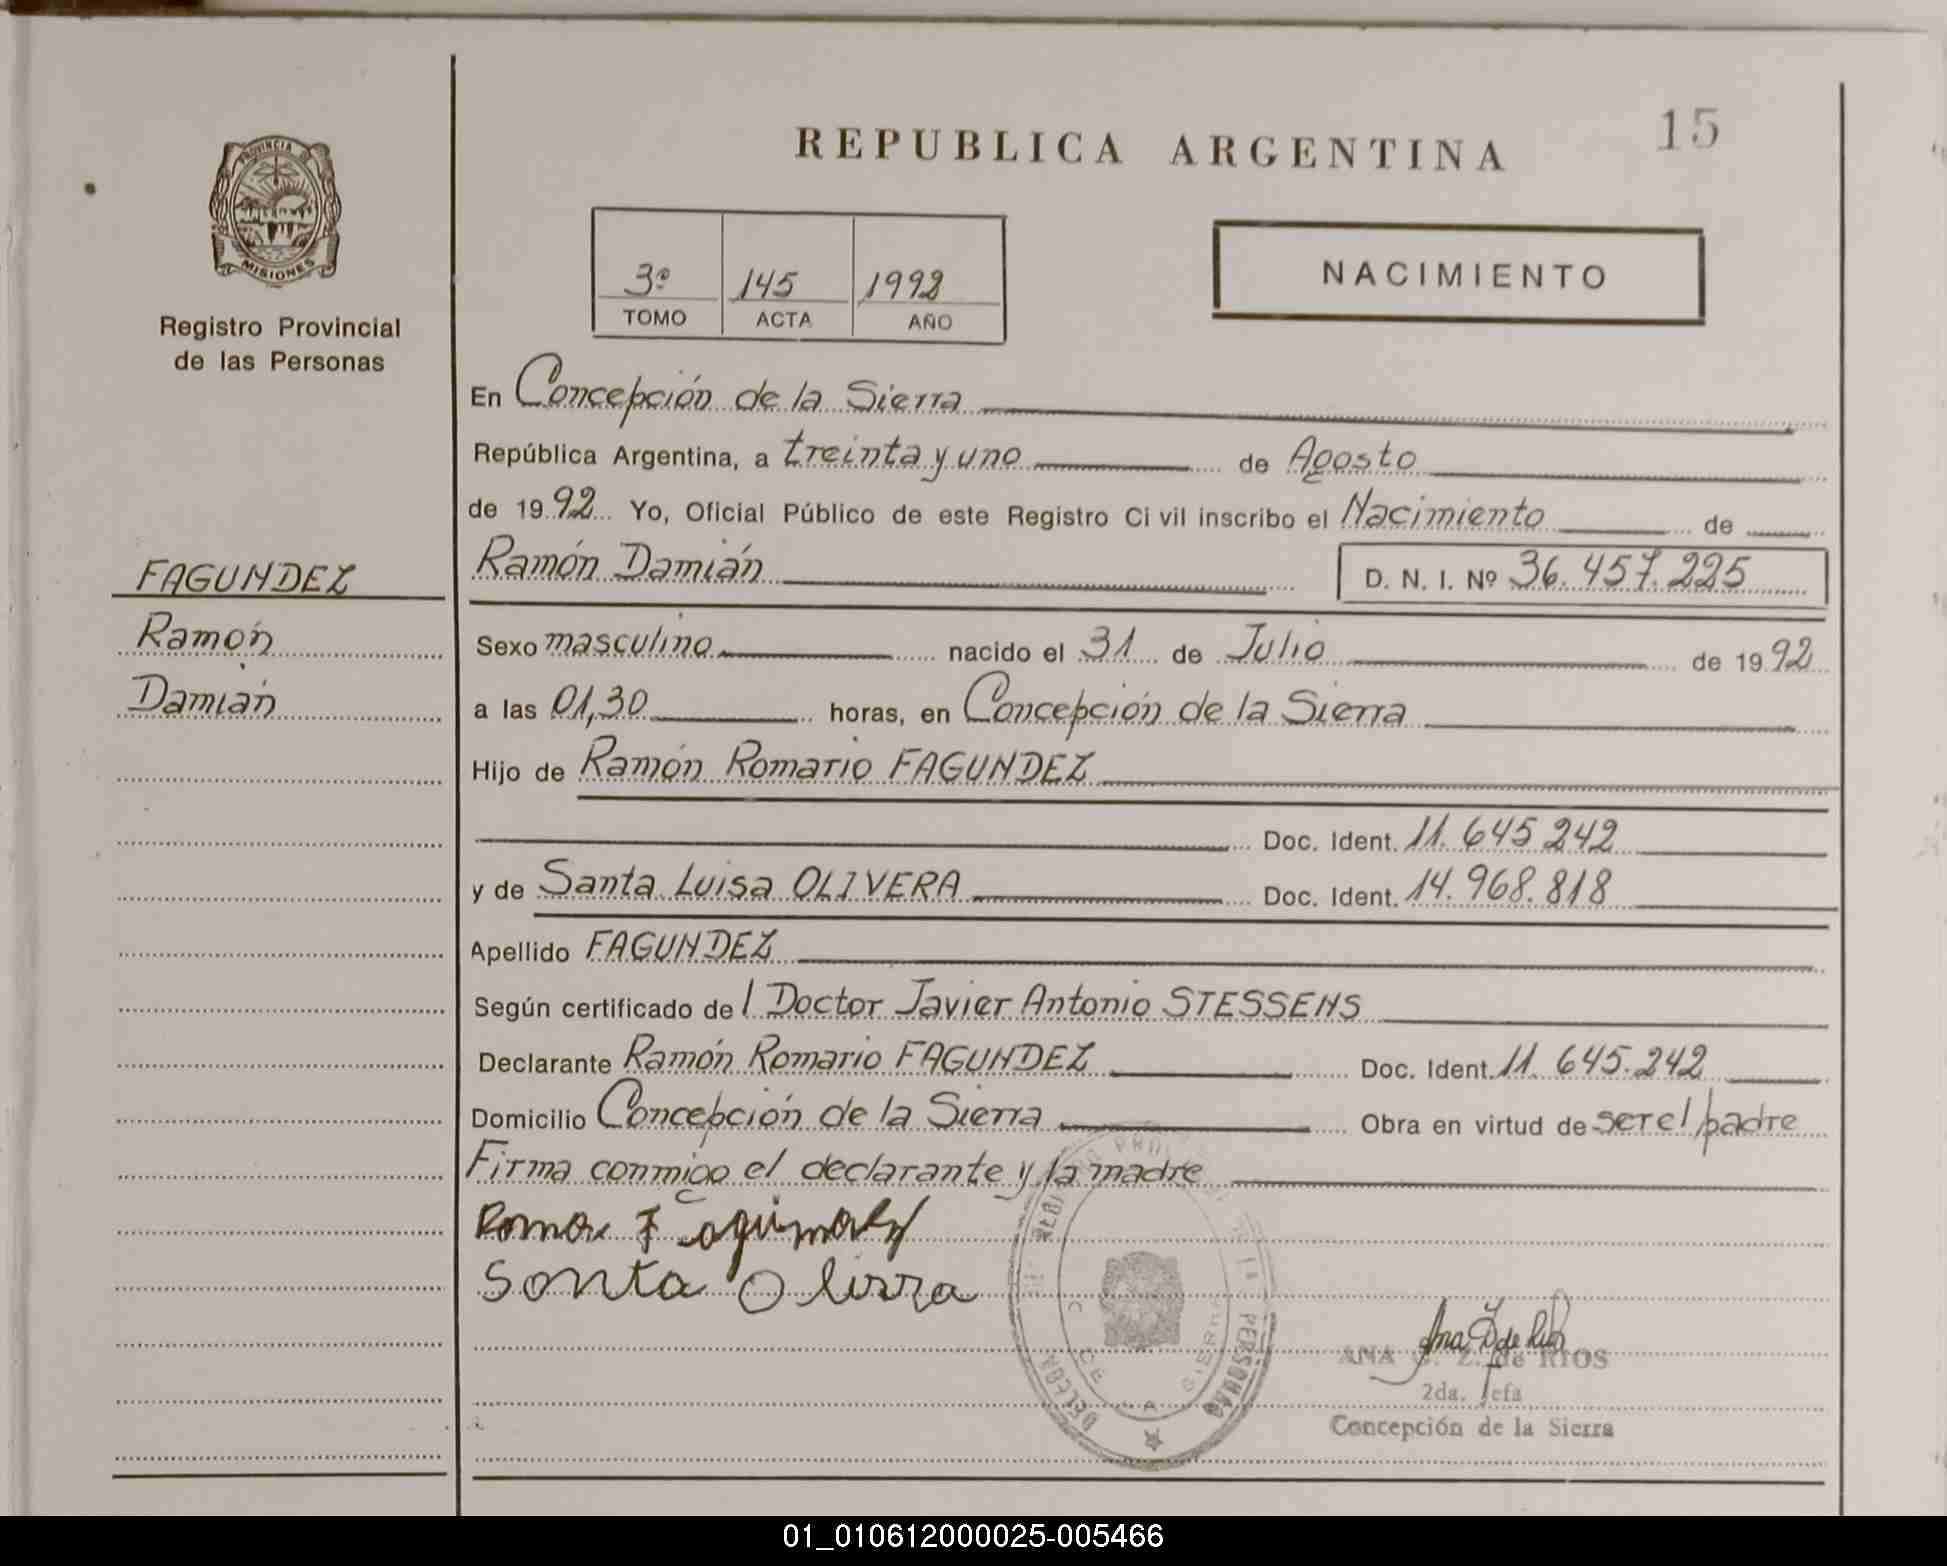 15
REPUBLICA ARGENTINA
PROVINCIA DE
MISIONES
Registro Provincial
de las Personas
3º 145 1992
TOMO ACTA AÑO
NACIMIENTO
En Concepción de la Sierra
República Argentina, a treinta y uno de Agosto
de 1992 Yo, Oficial Público de este Registro Civil inscribo el Nacimiento de
FAGUNDEZ
Ramón
Damián
Ramón Damián D. N. I. Nº 36.457.225
Sexo masculino nacido el 31 de Julio de 1992
a las 01,30 horas, en Concepción de la Sierra
Hijo de Ramón Romario FAGUNDEZ
Doc. Ident. 11.645.242
y de Santa Luisa OLIVERA Doc. Ident. 14.968.818
Apellido FAGUNDEZ
Según certificado del Doctor Javier Antonio STESSENS
Declarante Ramón Romario FAGUNDEZ Doc. Ident. 11.645.242
Domicilio Concepción de la Sierra Obra en virtud de ser el padre
Firma conmigo el declarante y la madre
Santa
ANA Z. de RIOS
2da. Jefa
Concepción de la Sierra
01_010612000025-005466